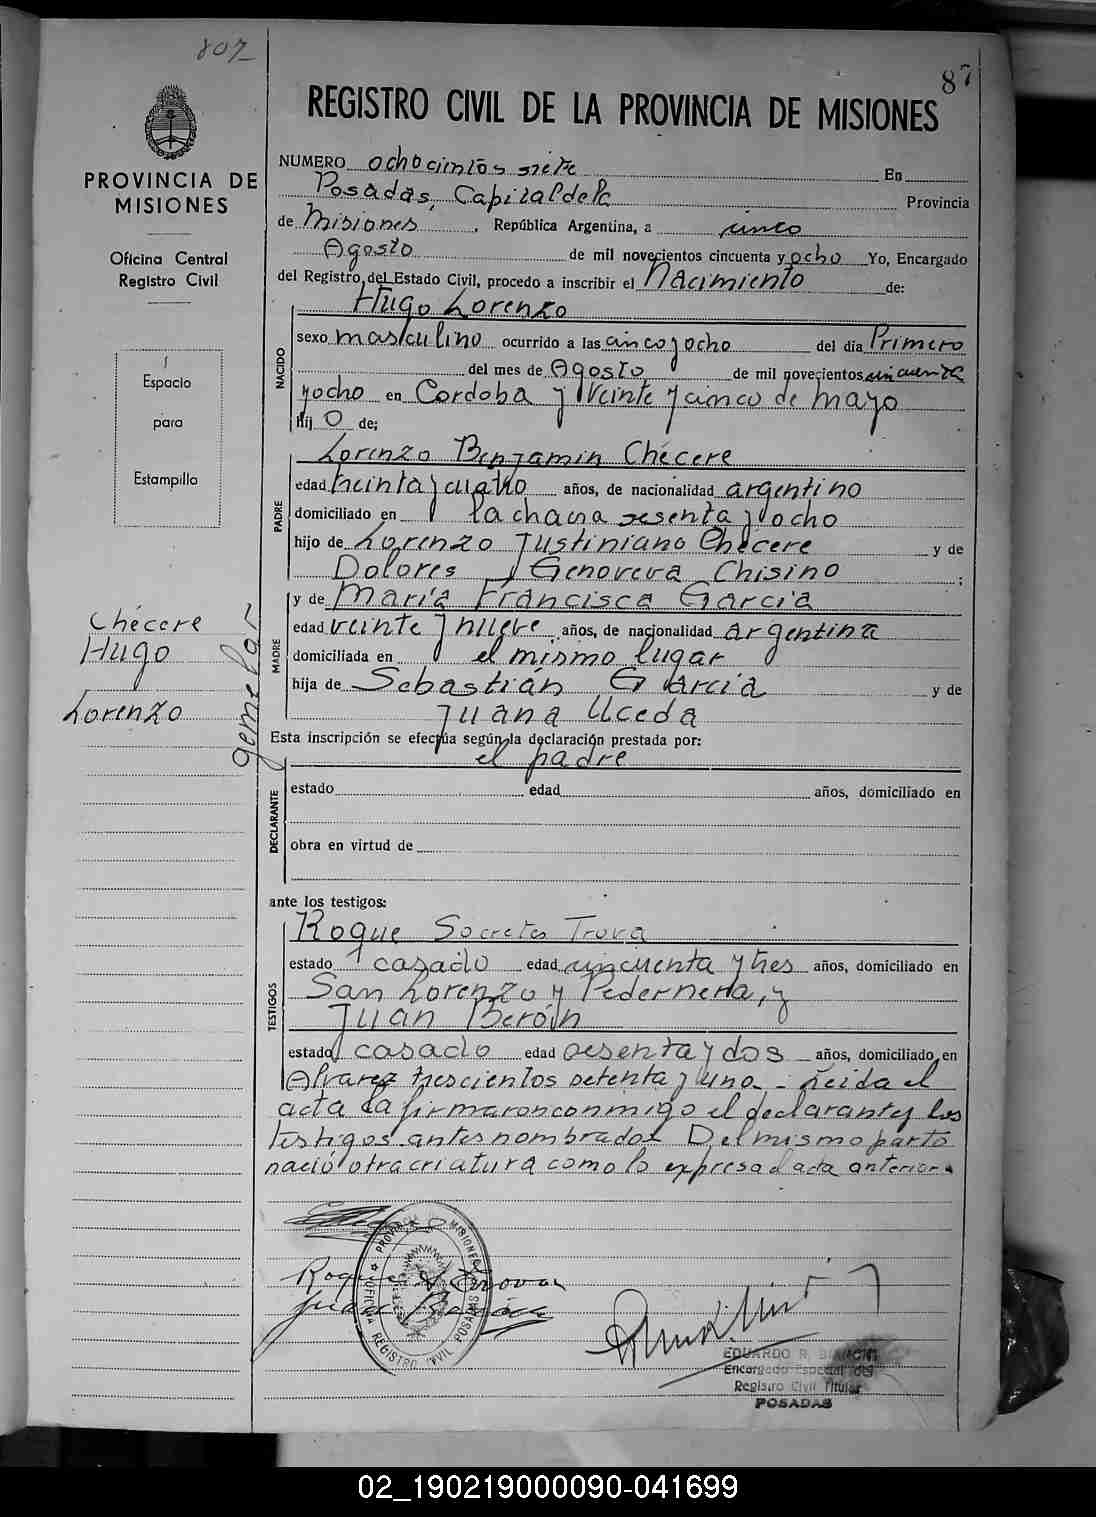 807
87
REGISTRO CIVIL DE LA PROVINCIA DE MISIONES
PROVINCIA DE
MISIONES
Oficina Central
Registro Civil
Espacio
para
Estampilla
NUMERO ochocientos siete En
Posadas, Capital de la Provincia
de Misiones, República Argentina, a cinco
Agosto de mil novecientos cincuenta y ocho Yo, Encargado
del Registro del Estado Civil, procedo a inscribir el Nacimiento de:
NACIDO
Hugo Lorenzo
sexo masculino ocurrido a las cinco y ocho del día Primero
del mes de Agosto de mil novecientos cincuenta
y ocho en Cordoba y Veinte y cinco de mayo
hij o de:
PADRE
Lorenzo Benjamin Chécere
edad treinta y cuatro años, de nacionalidad argentino
domiciliado en la chacra sesenta y ocho
hijo de Lorenzo Justiniano Chécere y de
Dolores Genoveva Chisino ;
MADRE
y de María Francisca Garcia
edad veinte y nueve años, de nacionalidad argentina
domiciliada en el mismo lugar
hija de Sebastián Garcia y de
Juana Uceda
Chécere
Hugo
Lorenzo
gemelar
Esta inscripción se efectúa según la declaración prestada por:
el padre
DECLARANTE
estado edad años, domiciliado en
obra en virtud de
ante los testigos:
TESTIGOS
Roque Socrates Trova
estado casado edad cincuenta y tres años, domiciliado en
San Lorenzo y Pedernera, y
Juan Beróin
estado casado edad sesenta y dos años, domiciliado en
Alvarez trescientos setenta y uno - Leida el
acta la firmaron conmigo el declarante y los
testigos antes nombrados Del mismo parto
nació otra criatura como lo expresa el acta anterior.
PROVINCIA DE MISIONES
OFICINA REGISTRO CIVIL POSADAS
Roque S Trova
Juan
EDUARDO R. BIANCHI
Encargado Especial del
Registro Civil Titular
POSADAS
02_190219000090-041699